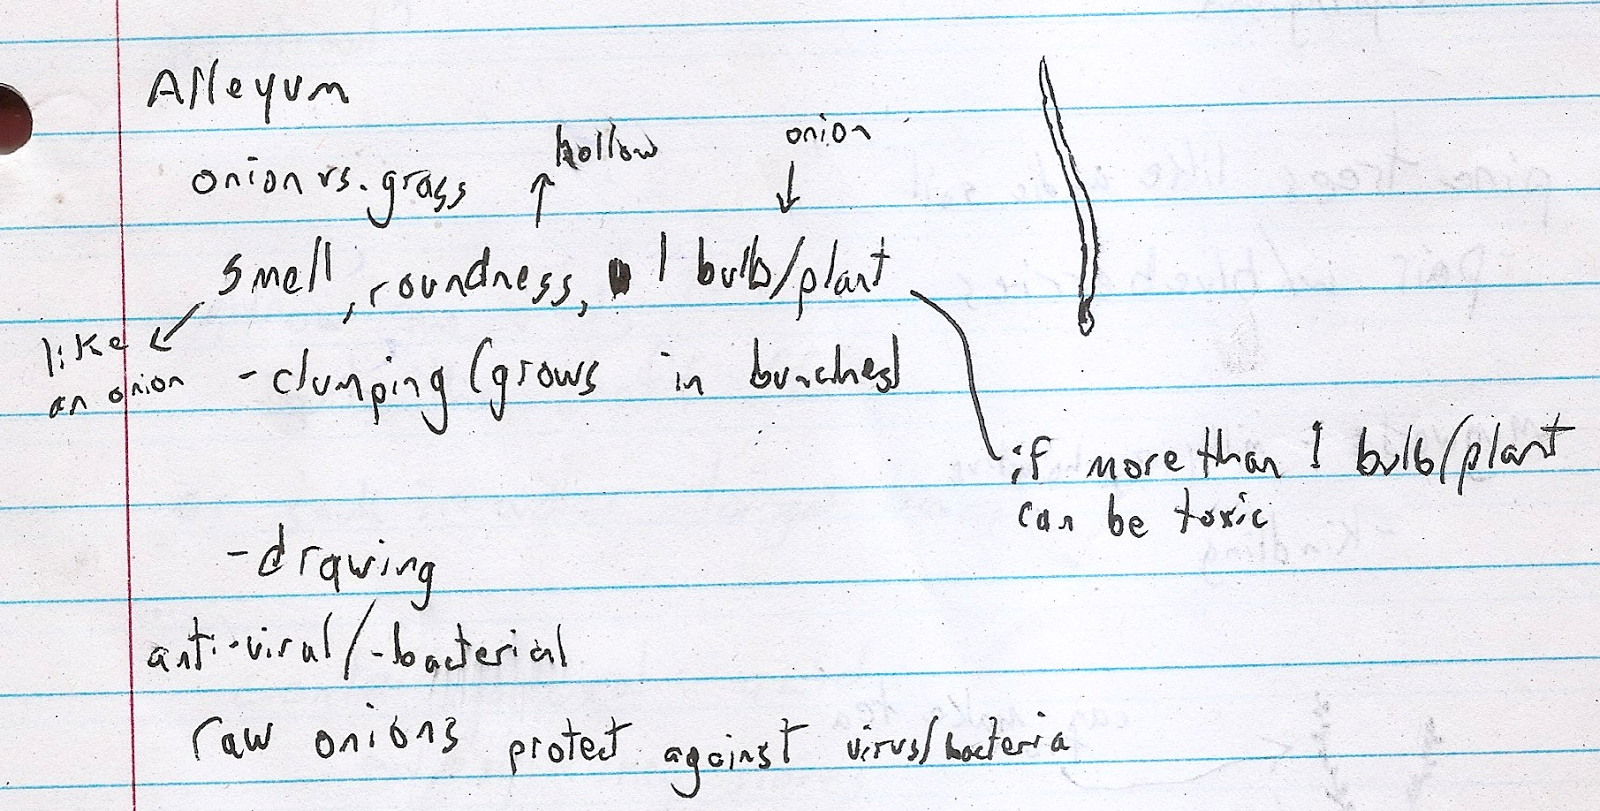 Alleyum
hollow
onion
onion vs. grass
smell, roundness, 1 bulb/plant
like
an onion
-clumping (grows in bunches)
if more than 1 bulb/plant
can be toxic
-drawing
anti-viral/-bacterial
raw onions protect against virus/bacteria